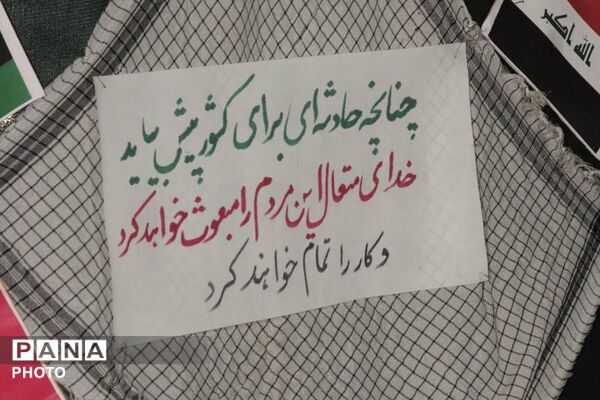 الله اكبر
چنانچه حادثه‌ای برای کشور پیش بیاید
خدای متعال این مردم را مبعوث خواهد کرد
و کار را تمام خواهند کرد
PANA
PHOTO